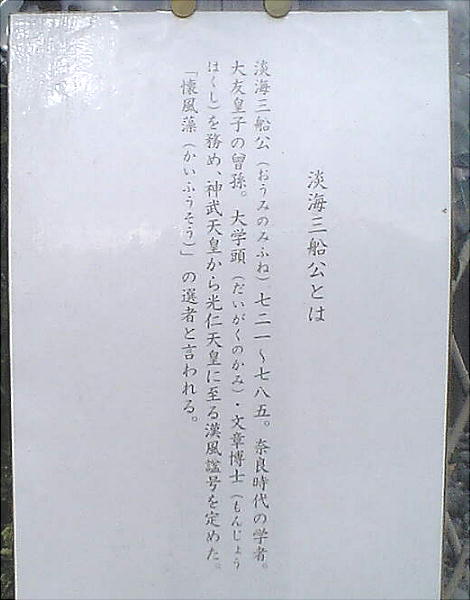 淡海三船公とは
淡海三船公(おうみのみふね)七二一〜七八五。奈良時代の学者。
大友皇子の曾孫。大学頭(だいがくのかみ)・文章博士(もんじょう
はくし)を務め、神武天皇から光仁天皇に至る漢風諡号を定めた。
「懐風藻(かいふうそう)」の選者と言われる。